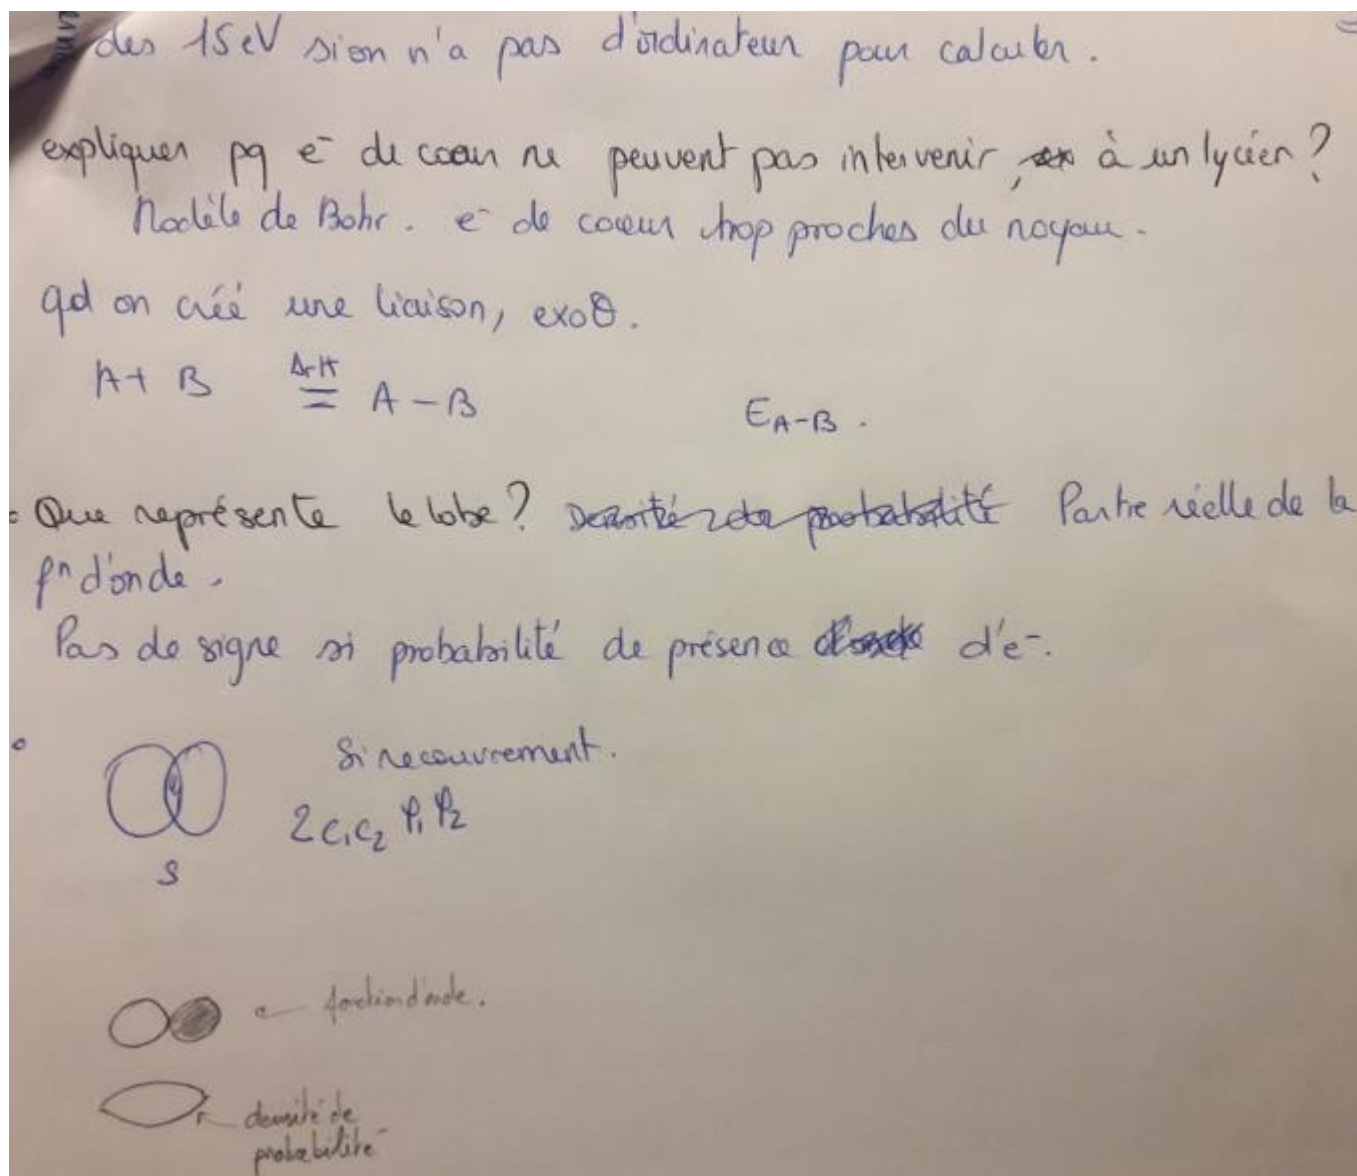 des 15 eV si on n'a pas d'ordinateur pour calculer.
expliquer pq e- de coeur ne peuvent pas intervenir, à un lycéen ?
Modèle de Bohr. e- de coeur trop proches du noyau.
qd on créé une liaison, exoθ.
A + B =ΔrH A - B
E_A-B.
Que représente le lobe ? Densité de probabilité Partie réelle de la
fn d'onde.
Pas de signe si probabilité de présence d'e-.
Si recouvrement.
2c₁c₂ φ₁φ₂
S
fonction d'onde.
densité de
probabilité